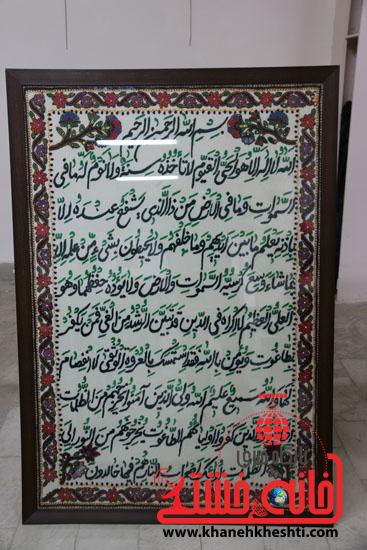 بسم الله الرحمن الرحیم
الله لا اله الا هو الحی القیوم لا تاخذه سنة ولا نوم له ما فی
السموات وما فی الارض من ذا الذی یشفع عنده الا
باذنه یعلم ما بین ایدیهم وما خلفهم ولا یحیطون بشیء من علمه الا
بما شاء وسع کرسیه السموات والارض ولا یؤده حفظهما وهو
العلی العظیم لا اکراه فی الدین قد تبین الرشد من الغی فمن یکفر
بالطاغوت ویؤمن بالله فقد استمسک بالعروة الوثقی لا انفصام
لها والله سمیع علیم الله ولی الذین آمنوا یخرجهم من الظلمات
الذین کفروا اولیائهم الطاغوت یخرجونهم من النور الی
الظلمات النار هم فیها خالدون
خانه خشتی
www.khanehkheshti.com